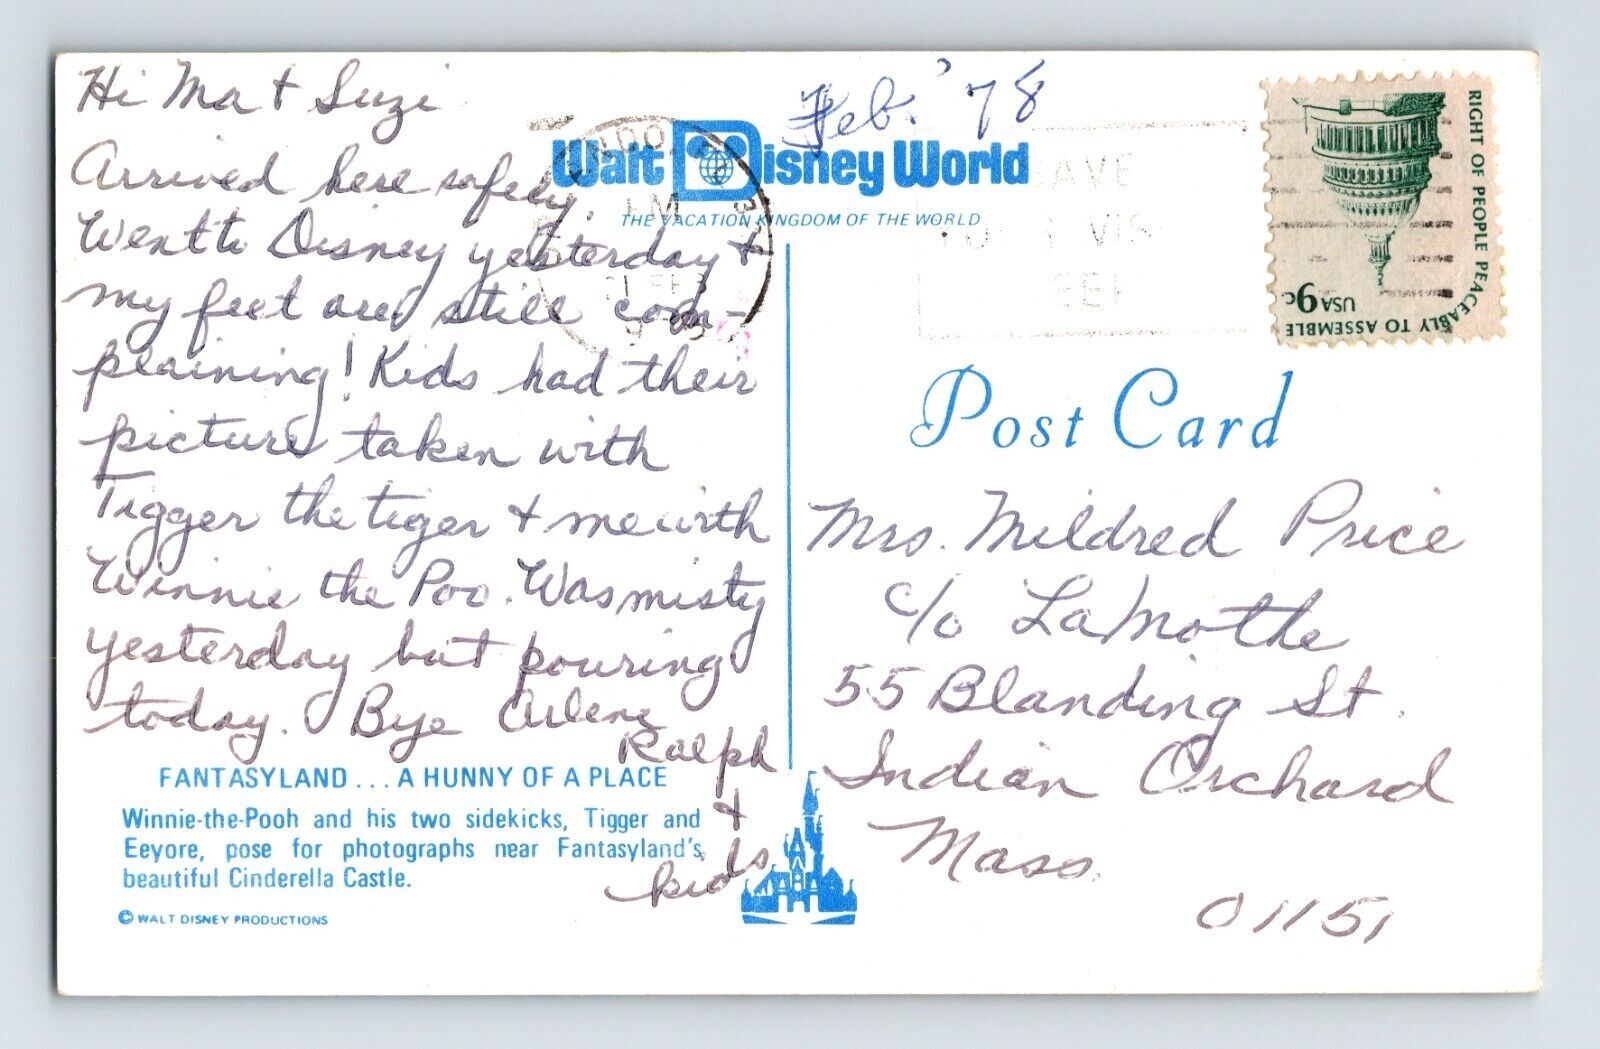 Hi Ma + Suzi
Arrived here safely.
Went to Disney yesterday +
my feet are still com-
plaining! Kids had their
picture taken with
Tigger the tiger + me with
Winnie the Poo. Was misty
yesterday but pouring
today. Bye Arlene
Ralph
+
kids
FANTASYLAND... A HUNNY OF A PLACE
Winnie-the-Pooh and his two sidekicks, Tigger and
Eeyore, pose for photographs near Fantasyland's
beautiful Cinderella Castle.
© WALT DISNEY PRODUCTIONS
Feb. '78
Walt Disney World
THE VACATION KINGDOM OF THE WORLD
PM
RIGHT OF PEOPLE PEACEABLY TO ASSEMBLE
USA 9c
Post Card
Mrs. Mildred Price
c/o LaMothe
55 Blanding St.
Indian Orchard
Mass.
01151